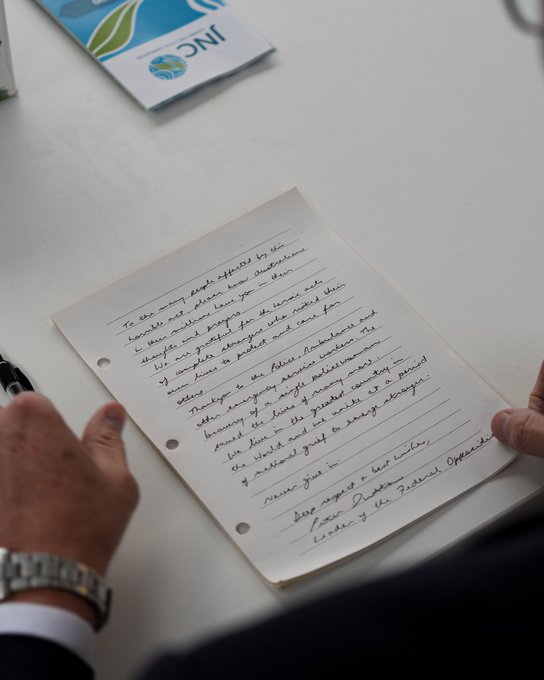 JNC
To the many people affected by this
horrible act, please know Australians
in their millions have you in their
thoughts and prayers.
We are grateful for the heroic acts
of complete strangers who risked their
own lives to protect and care for
others.
Thankyou to the Police, Ambulance and
other emergency service workers. The
bravery of a single policewoman
saved the lives of many more.
We live in the greatest country in
the world and we unite at a period
of national grief to emerge stronger.
Never give in.
Deep respect + best wishes,
Peter Dutton
Leader of the Federal Opposition